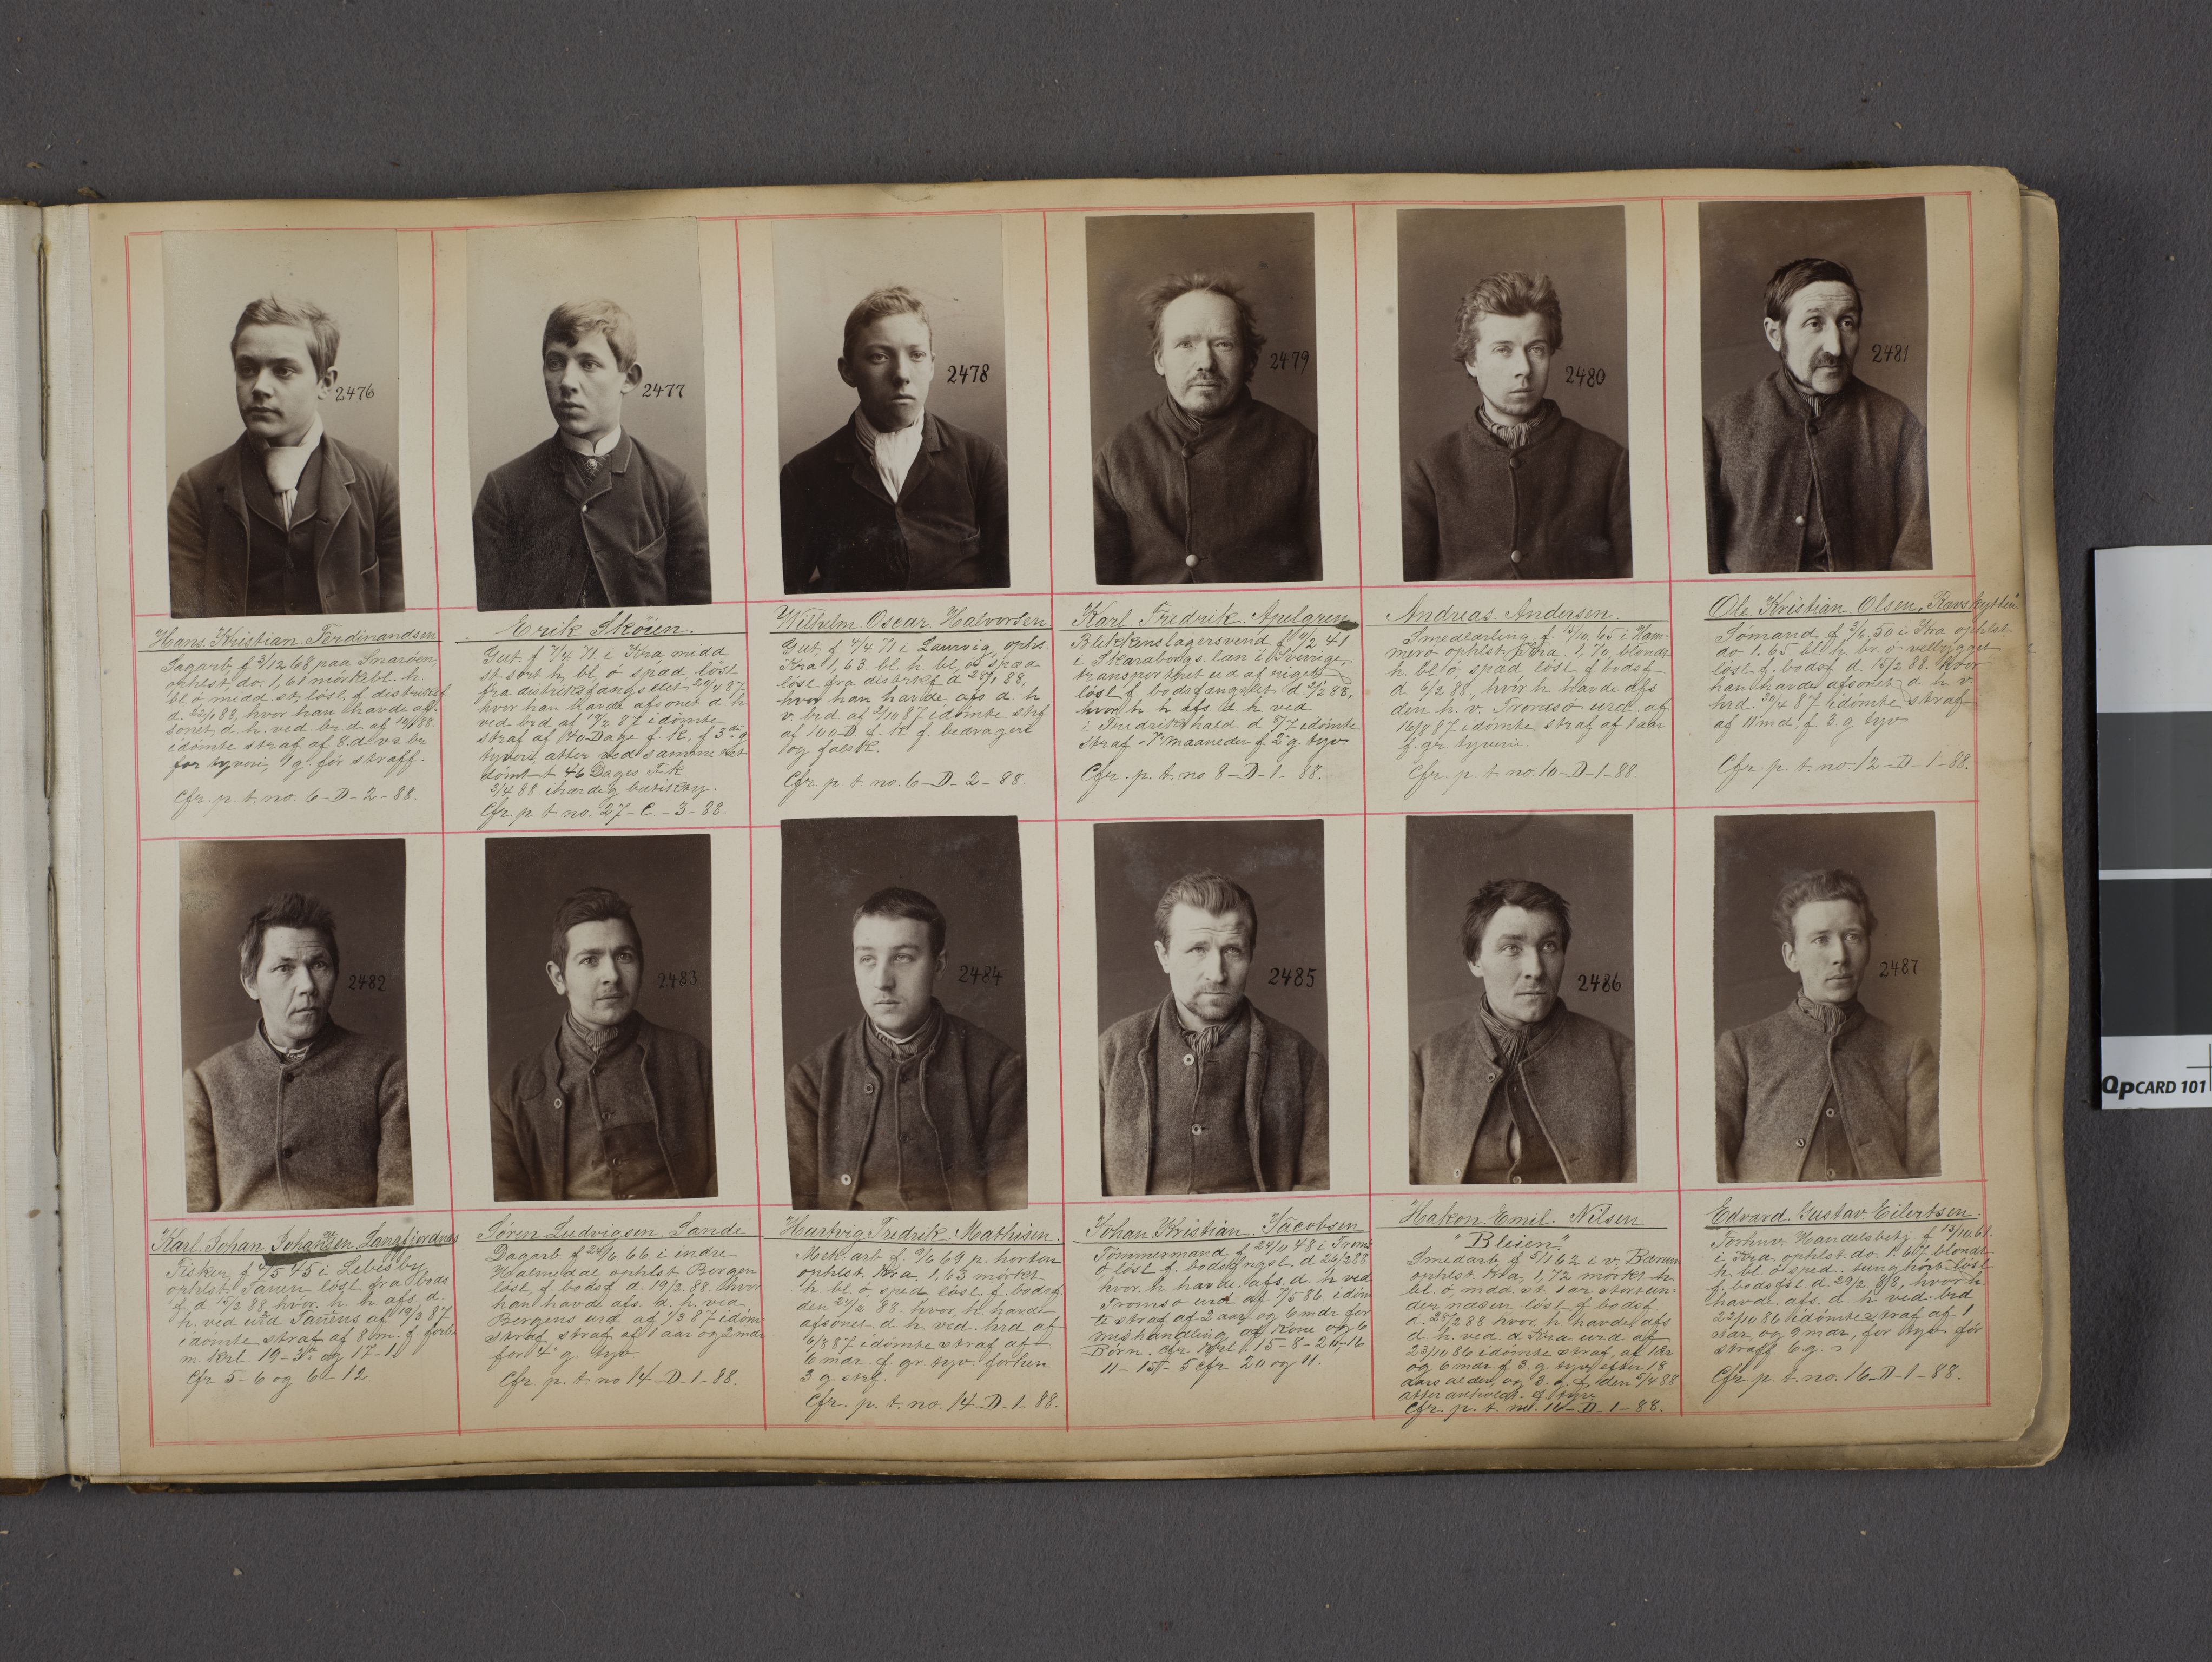 2476
2477
2478
2479
2480
2481
Hans. Kristian. Ferdinandsen
Jagarb. f 3/12 68 paa Snaröen,
ophlst. do 1,61 mörkebl. h.
bl. ö midd. st. löst. f distriksf
d. 22/1 88, hvor han havde af-
sonet, d. h. ved br. d. af 14/1 88.
idömte straf af 8. d. v & br
for tyveri, 1 g. för straff.
Cfr. p. t. no. 6-D-2-88.
Erik Sköien.
Gut. f 7/4 71 i Kra midd
st. sort h, bl, ö spæd löst
fra distriksfængslet 20/4 87
hvor han havde afsonet d h
ved brd af 19/2 87 idömte
straf af 140 Dage f. k. f 3die g
tyveri, atter ved samme ret
dömt t 46 Dages F k.
3/4 88
Cfr. p. t. no. 27-C.-3-88.
Wilhelm. Oscar. Halvorsen
Gut, f 4/4 71 i Laurvig, ophs.
Kra 1,63 bl. h. bl, ö spæd
löst fra distrksf d 28/1 88,
hvor han havde afs d. h
v. brd af 2/10 87 idömte strf
af 100 D f. k f. bedrageri
og falsk.
Cfr. p. t. no. 6-D-2-88.
Karl Fredrik. Apelgren
Blikkenslagersvend f 14/2 41
i Skaraborgs. læn i Sverrige,
transporthet ud af riget
löst f. bodsfængslet d 2/2 88,
hvor h h afs d h ved
i Fredrikshald d 8/7 idömte
Straf 7 maaneder f. 2 g. tyv
Cfr. p. t. no 8-D-1-88.
Andreas. Andersen.
Smedlærling. f. 15/10 65 i Ham-
merö ophlst. Kra. 1,70, blondt
h. bl. ö. spæd, löst, f bodsf
d 6/2 88, hvor h havde afs
den h. v. Tromsö urd. af
16/8 87 idömte straf af 1 aar
f. gr tyveri.
Cfr. p. t. no. 10-D-1-88.
Ole. Kristian. Olsen, Rævskytten
Sömand, f 3/6 50 i Kra ophlst.
do 1.65 bl. h. br. ö velbygget
löst f. bodsf d 15/2 88. hvor
han havde afsonet d h v.
hrd. 30/4 87 idömte straf
af 11 md. f. 3. g. tyv
Cfr. p. t. no. 12-D-1-88.
2482
2483
2484
2485
2486
2487
Karl. Johan. Johansen. Langfjordnes
Fisker, f 4/5 45 i Lebesby
ophlst. Tanen löst fra bods
f. d 15/2 88 hvor. h. h afs, d.
h. ved urd Tanens af 19/3 87
idömte straf af 8 m. f forbr
m. krl. 19-3. og 17-1.
Cfr 5-6 og 6-12
Sören Ludvigsen. Sande
Dagarb f 24/6 66 i indre
Holmedal ophlst Bergen
löst, f. bodsf d. 19/2 88. hvor
han havde afs. d. h. ved
Bergens urd af 1/3 87 idömt
straf straf af 1 aar og 2 mdr
for 4. g. tyv.
Cfr p. t. no 14-D-1-88.
Hartvig. Fredrik. Mathisen.
Mek. arb f. 9/6 69 p. horten
ophlst. Kra, 1,63 mörkt
h. bl ö. sped löst f. bodsf.
den 24/2 88. hvor h. havde
afsonet d. h. ved. hrd af
6/8 87 idömte straf af
6 mdr. f. gr. tyv. forhen
3. g. strf.
Cfr. p. t. no. 14-D-1-88.
Johan. Kristian. Jacobsen
Tömmermand f. 24/11 48 i Troms
ö löst f. bodsfngsl. d 26/2 88
hvor. h. havde. afs. d. h ved
Tromsö urd af 7/5 86 idöm
te straf af 2 aar og 6 mdr for
mishandling af Kone og 6
Börn. Cfr krl. 15-8-
11-15-5 cfr 20 og 11.
Hakon. Emil. Nilsen
"Bleien"
Smedarb, f 5/1 62 i v. Bærum
ophlst. Kra, 1,72 mörket h.
bl. ö, midd st. 1 ar stort un-
der næsen löst f bodsf.
d. 28/2 88 hvor. h havde afs
d h. ved. d Kra urd af
23/10 86 idömte straf, af 1 ar
og 6 mdr. f 3. g. tyv, efter 18
aars alder, og 3. g. f. den 5/4 88
atter anholdt. f tyv.
Cfr. p. t. no. 16-D-1-88.
Edvard. Gustav. Eilertsen.
Forhnv. Handelsbetj f 13/10 61.
i Kra, ophlst. do. 1.67 blondt
h. bl. ö sped. tunghört löst
f. bodsfsl d. 29/2 88, hvor h.
havde afs. d h ved. brd
22/10 86 idömte straf af 1
aar, og 9 mdr, for tyv för
straff 6 g.
Cfr. p. t. no. 16-D-1-88.
QpCARD 101